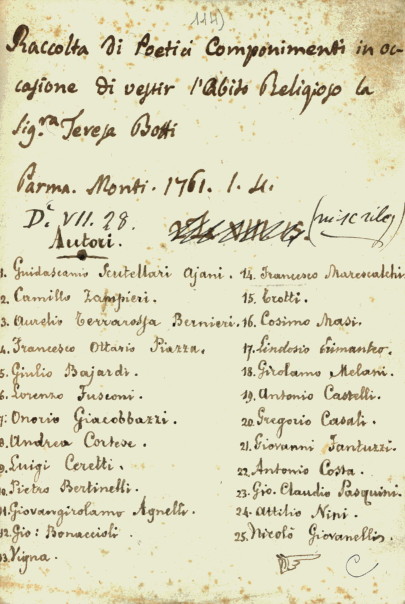 114)
Raccolta di Poetici Componimenti in oc-
casione di vestir l'Abito Religioso la
Sig.ra Teresa Botti
Parma. Monti. 1761. 1. 4.
D.c VII. 28.
Autori.
1. Guidascanio Scutellari Ajani.
2. Camillo Zampieri.
3. Aurelio Terrarossa Bernieri.
4. Francesco Ottavio Piazza.
5. Giulio Bajardi.
6. Lorenzo Fusconi.
7. Onorio Giacobbazzi.
8. Andrea Cortese.
9. Luigi Ceretti.
10. Pietro Bertinelli.
11. Giovangirolamo Agnelli.
12. Gio: Bonaccioli.
13. Vigna.
14. Francesco Marescalchi
15. Crotti.
16. Cosimo Masi.
17. Lindosio Erimanteo.
18. Girolamo Melani.
19. Antonio Castelli.
20. Gregorio Casali.
21. Giovanni Fantuzzi.
22. Antonio Costa.
23. Gio. Claudio Pasquini.
24. Attilio Nini.
25. Nicolò Giovanellis.
C